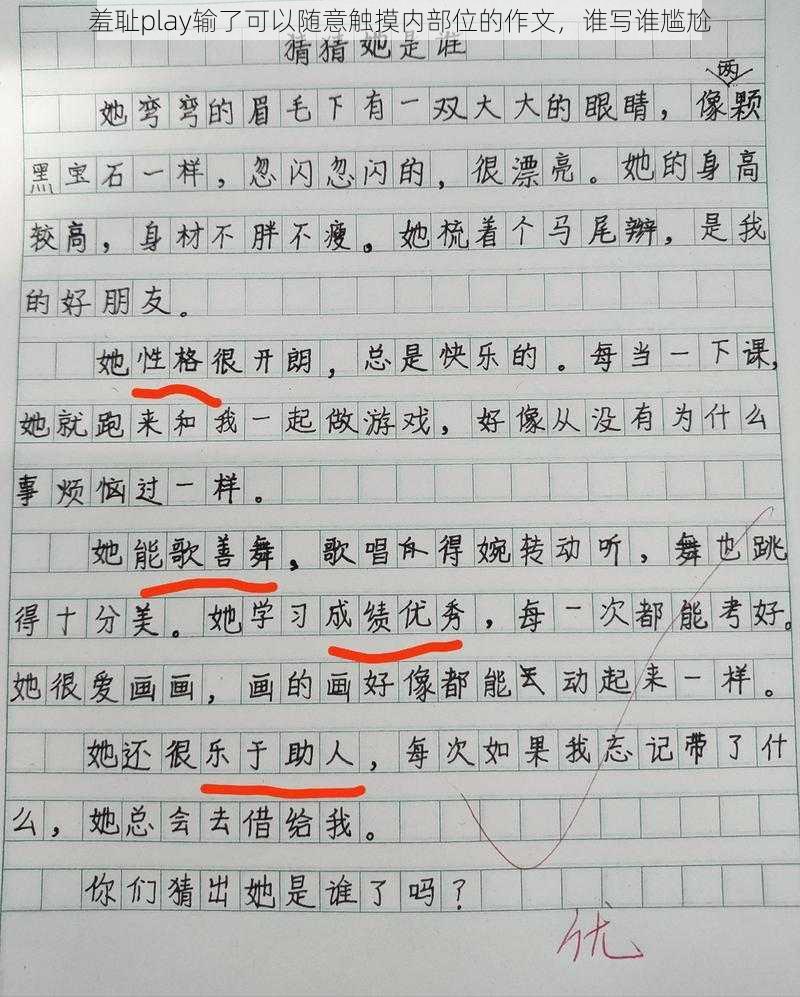 羞耻play输了可以随意触摸内部位的作文，谁写谁尴尬
猜猜她是谁
两
她弯弯的眉毛下有一双大大的眼睛，像颗
黑宝石一样，忽闪忽闪的，很漂亮。她的身高
较高，身材不胖不瘦。她梳着个马尾辫，是我
的好朋友。
她性格很开朗，总是快乐的。每当一下课，
她就跑来和我一起做游戏，好像从没有为什么
事烦恼过一样。
她能歌善舞，歌唱得婉转动听，舞也跳
得十分美。她学习成绩优秀，每一次都能考好。
她很爱画画，画的画好像都能动起来一样。
她还很乐于助人，每次如果我忘记带了什
么，她总会去借给我。
你们猜出她是谁了吗？
优